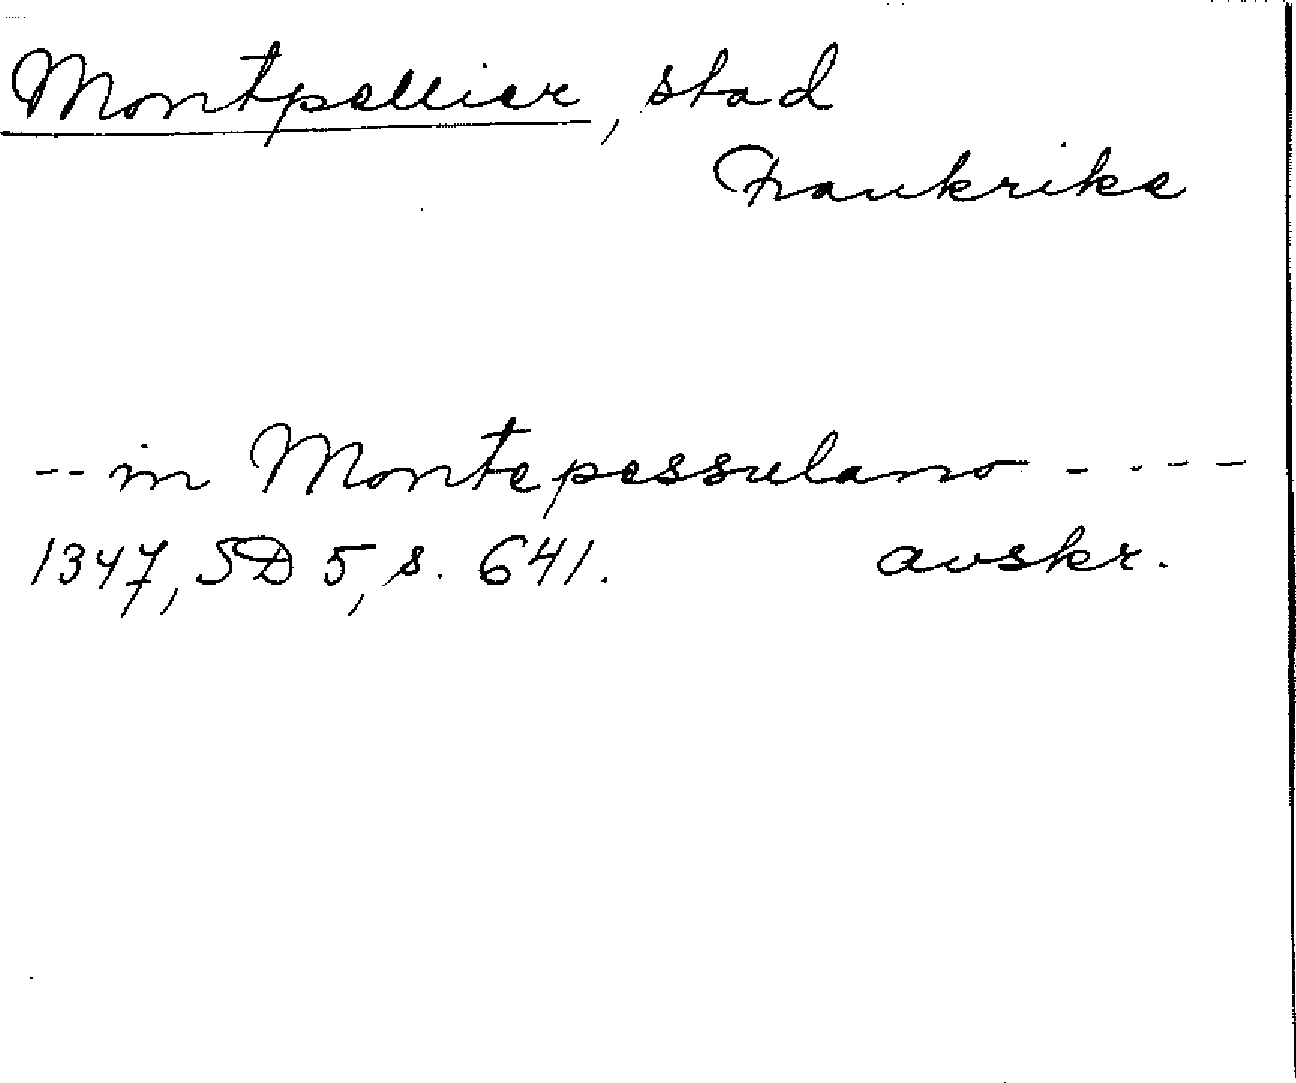 Montpellier, stad
Frankrike
-- in Montepessulano ----
1347, SD 5, s. 641. avskr.